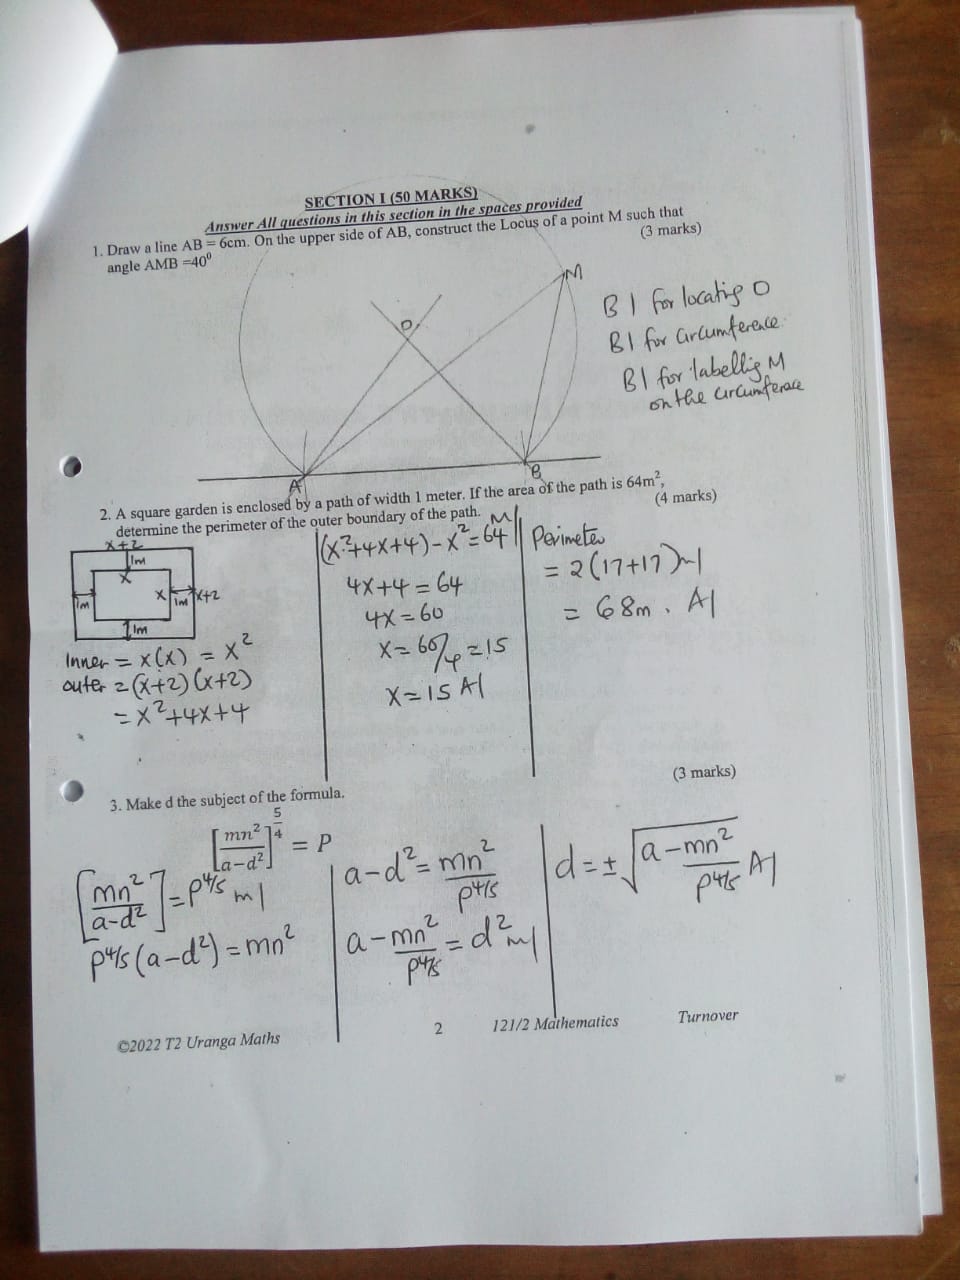 SECTION I (50 MARKS)
Answer All questions in this section in the spaces provided
1. Draw a line AB = 6cm. On the upper side of AB, construct the Locus of a point M such that
angle AMB =40⁰
(3 marks)
M
O
A
B
B1 for locating O
B1 for circumference.
B1 for labellig M
on the circumferace
2. A square garden is enclosed by a path of width 1 meter. If the area of the path is 64m²,
determine the perimeter of the outer boundary of the path.
(4 marks)
x+2
1m
x
x
1m
1m
x+2
1m
Inner = x(x) = x²
outer = (x+2)(x+2)
= x²+4x+4
(x²+4x+4)-x²=64 M1
4x+4=64
4x=60
x=60/4=15
x=15 A1
Perimeter
= 2(17+17) m1
= 68m. A1
3. Make d the subject of the formula.
(3 marks)
[mn²/(a-d²)]^(5/4) = P
[mn²/(a-d²)] = p^(4/5) m1
p^(4/5)(a-d²) = mn²
a-d² = mn²/p^(4/5)
a-mn²/p^(4/5) = d² m1
d=±√(a-mn²/p^(4/5)) A1
©2022 T2 Uranga Maths
2
121/2 Mathematics
Turnover